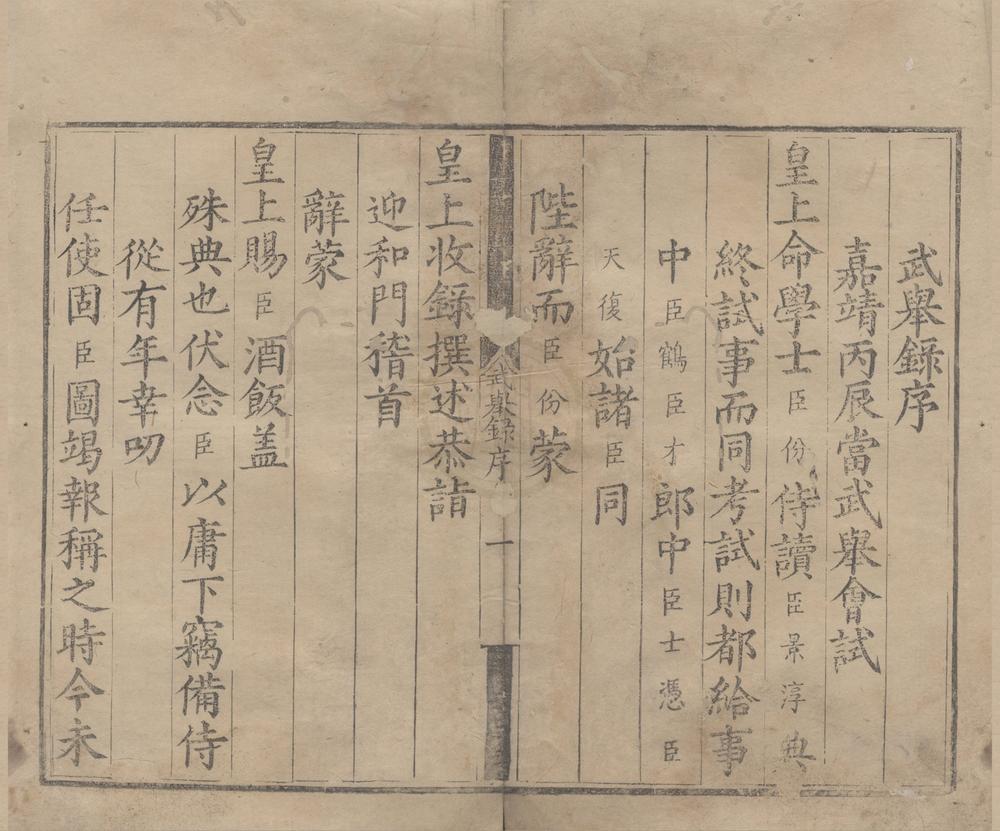 武舉錄序
嘉靖丙辰當武舉會試
皇上命學士臣份侍讀臣景淳典
終試事而同考試則都給事
中臣鶴臣才郎中臣士憑臣
天復始諸臣同
陛辭而臣份蒙
武舉錄序 一
皇上收錄撰述恭詣
迎和門稽首
辭蒙
皇上賜臣酒飯盖
殊典也伏念臣以庸下竊備侍
從有年幸叨
任使固臣圖竭報稱之時今永